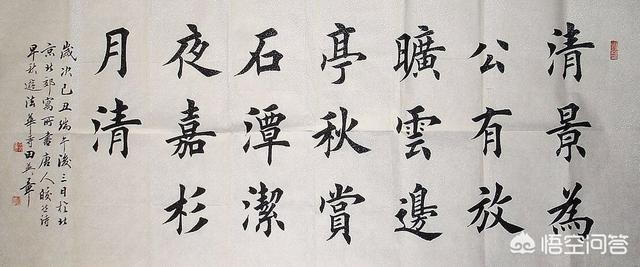 清景為
公有放
曠雲邊
亭秋賞
石潭潔
夜嘉杉
月清
歲次己丑端午後三日於北
京北郊寓所書唐人皎然詩
早秋遊法華寺田英章
悟空问答